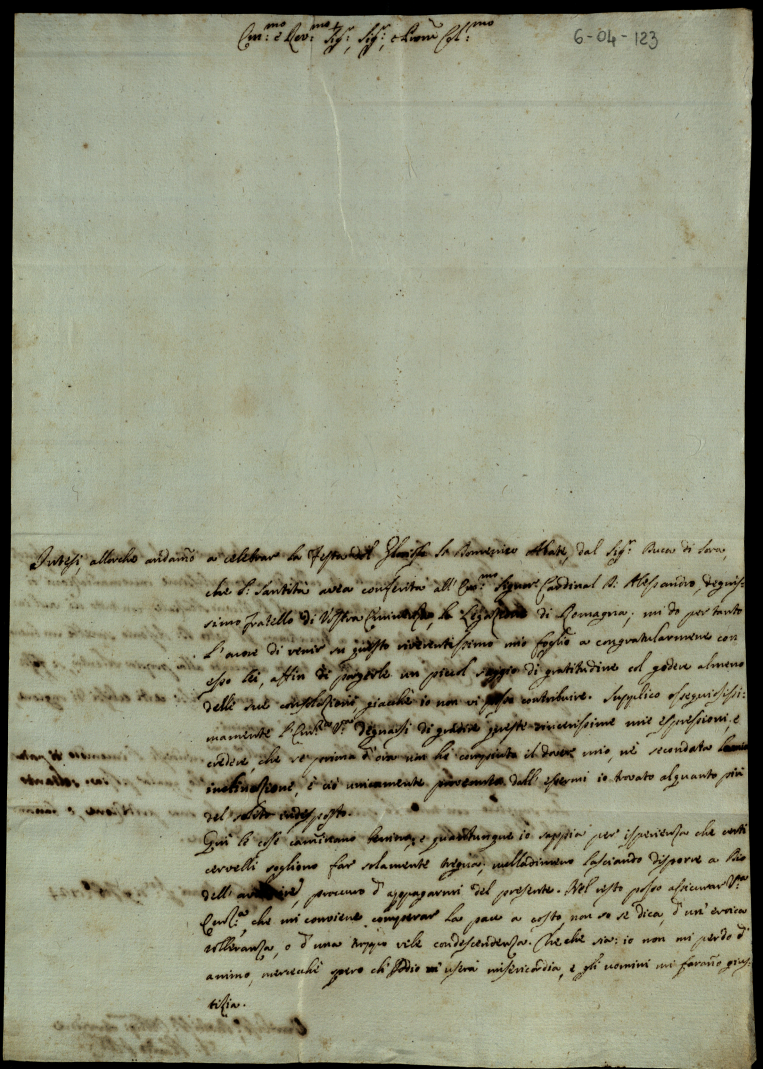 Em:mo e Rev:mo Sig:r, Sig:r, e Pron Col:mo
6-04-123
Intesi, allorche andamo a celebrar la Festa del Glorioso Sn Domenico Abate, dal Sig:r Duca di Sora,
che S: Santità avea conferita all' Em:mo Signore Cardinal D. Alessandro, degnis-
simo fratello di Vostra Eminenza la Legazione di Romagna; mi do per tanto
l'onore di venir su questo riverentissimo mio foglio a congratularmene con
esso lei, affin di porgerle un piccol saggio di gratitudine col godere almeno
delle sue consolazioni, giacchè io non vi posso contribuire. Supplico ossequiosissi-
mamente degnarsi di gradir queste sincerissime mie espressioni, e
credere, che se prima d'ora non hò compiuto il dover mio, nè secondata la mia
inclinazione, è ciò unicamente provenuto dall' essermi io trovato alquanto più
del solito indisposto.
Qui le cose caminano benino, e quantunque io sappia per isperienza che certi
cervelli sogliono far solamente tregua; nulladimeno lasciando disporre a Dio
dell' avvenire, procuro d'appagarmi del presente. Nel resto posso assicurar V:a
Emz:a, che mi conviene comperar la pace a costo, non so se dica, d'un' eroica
tolleranza, o d'una troppo vile condescendenza. Che che sia: io non mi perdo d'
animo, merecchè spero ch' Iddio m' userà misericordia, e gli uomini mi faranno gius-
tizia.